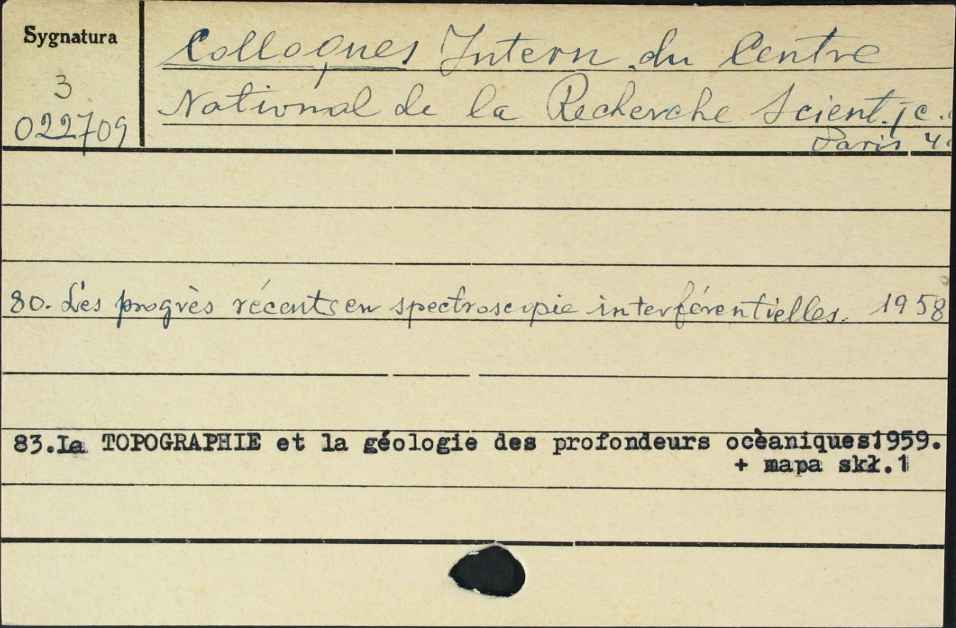 Sygnatura
3
022709
Colloques Intern. du Centre
National de la Recherche Scient.
Paris
80. Les progrès récents en spectroscopie interférentielles. 1958
83.La TOPOGRAPHIE et la géologie des profondeurs ocèaniques1959.
+ mapa skł.1